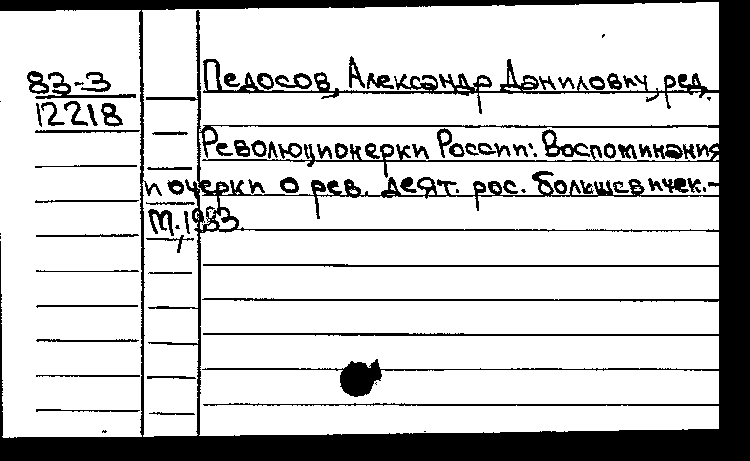 83-3
12218
Педосов, Александр Данилович, ред.
Революционерки России: Воспоминания
и очерки о рев. деят. рос. большевичек.-
М., 1983.